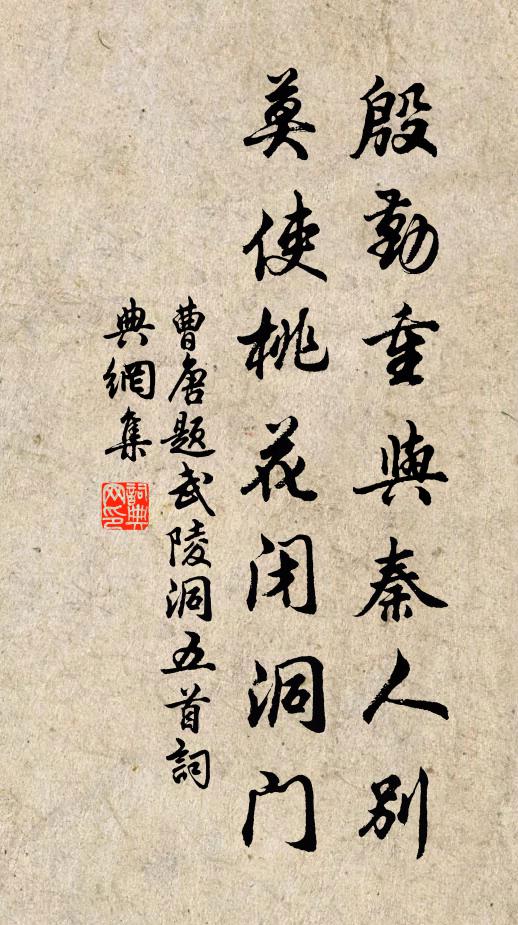 殷勤重與秦人別
莫使桃花闭洞门
曹唐題武陵洞五首詞
典網集
詞典
网印